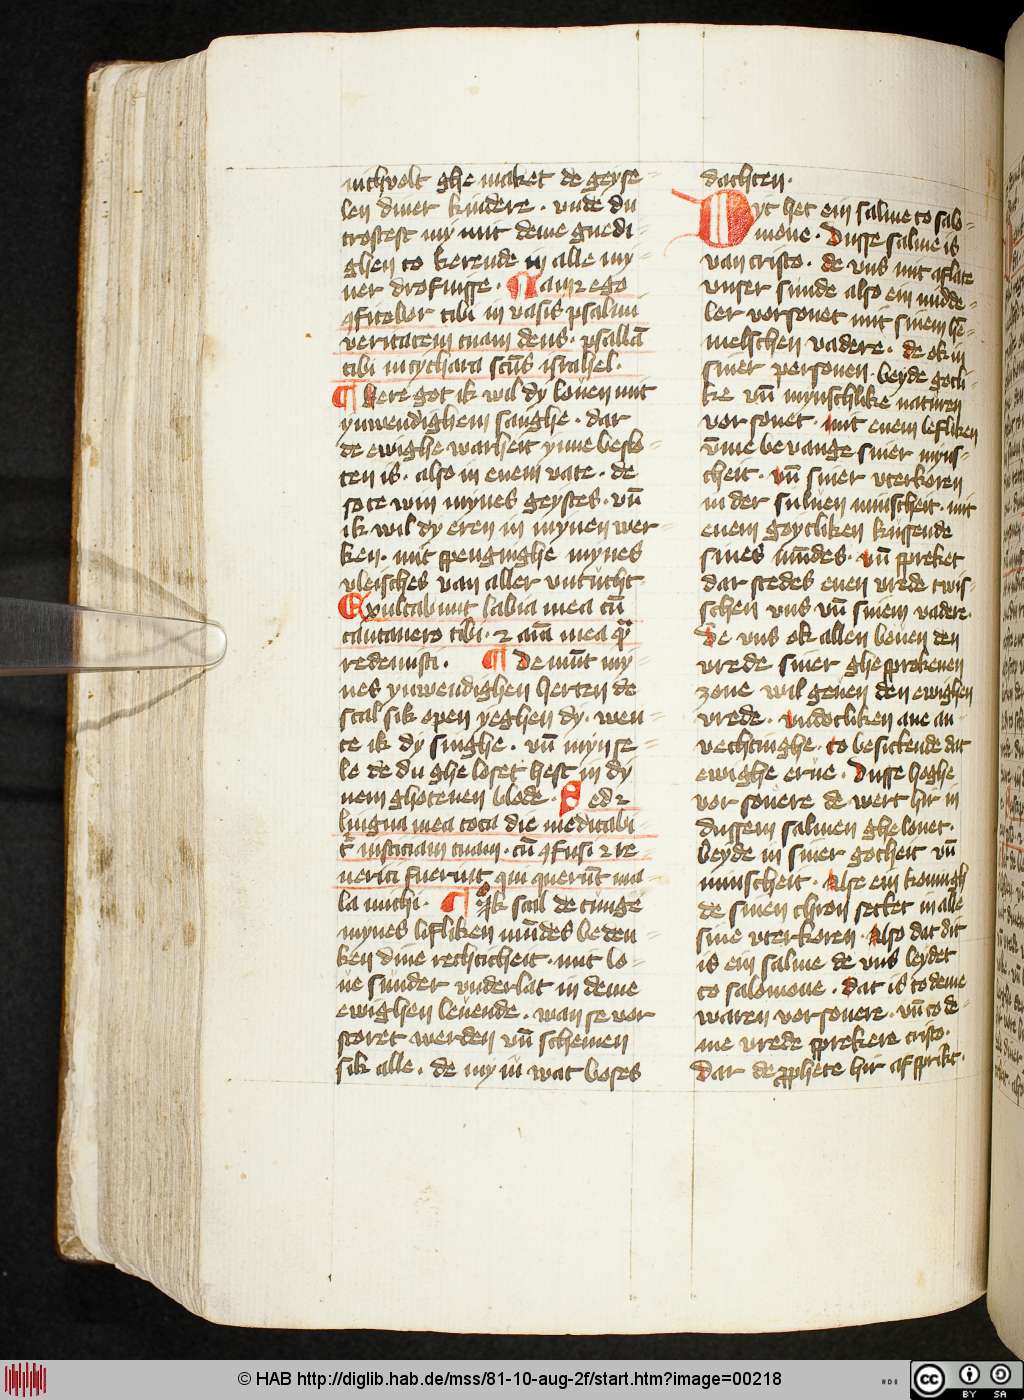 nichvolt ghe maket de geyse
len diner kindere · vnde du
trostest my mit deme guedi
ghen to kerende in alle my
ner drofnisse · Nam ⁊ ego
ꝯfitebor tibi in vasis psalmi
veritatem tuam deus · psallā
tibi in cythara scūs israhel ·
¶ Here got ik wil dy louen mit
ynwendighem sanghe · dar
de ewighe warheit ynne beslo
ten is · also in enem vate · de
sote win mynes geystes · vn̄
ik wil dy eren in mynen wer
ken · mit ppenginghe mynes
vleisches van aller vntucht
Exultabunt labia mea cū
cantauero tibi · ⁊ aīa mea qͣ
redemisti · ¶ De mūt my
nes ynwendighen herten de
scal sik open yeghen dy · wen
te ik dy singhe · vn̄ myn se
le de du ghe loset hest in dy
nem ghotenen blode · Sed ⁊
lingua mea tota die meditabi
t̄ iusticiam tuam · cū ꝯfusi ⁊ re
ueriti fuerint qui querūt ma
la michi · ¶ Ik scal de tunge
mynes lifliken mūdes beden
ken dine rechticheit · mit lo
ue sunder vnderlat in deme
ewighen leuende · wan se vor
storet werden vn̄ schemen
sik alle · de my in wat boses
dachten ·
Dyt het ein salme to salo
mone · Dusse salme is
van cristo · de vns mit aflate
vnser sunde also ein midde
ler vorsonet mit sinem he
melschen vadere · de ok in
siner personen · beyde gotli
ke vn̄ mynschlike naturen
vorsonet · mit enem lefliken
vmme bevange siner myns
cheit · vn̄ siner vterkoren
in der suluen minscheit · mit
enem geystliken kussende
sines mūdes · vn̄ spreket
dar stedes enen vrede twis
schen vns vn̄ sinem vadere ·
De vns ok allen bouen den
vrede siner ghesprokenen
zone wil geuen den ewighen
vrede · vndotliken ane an
vechtinghe · to besittende dat
ewighe erue · Dusse hoghe
vor sonere de wert hir in
dussem salmen ghelouet ·
beyde in siner gotheit vn̄
minscheit · Alse ein konnigh
de sinen thron settet in alle
sine vterkoren · Also dat dit
is ein salme de vns leydet
to salomone · Dat is to deme
waren vorsonere · vn̄ to de
me vrede sprekere cristo ·
Dar de ꝓphete hir af sprikt ·
© HAB http://diglib.hab.de/mss/81-10-aug-2f/start.htm?image=00218
HAB
cc BY SA